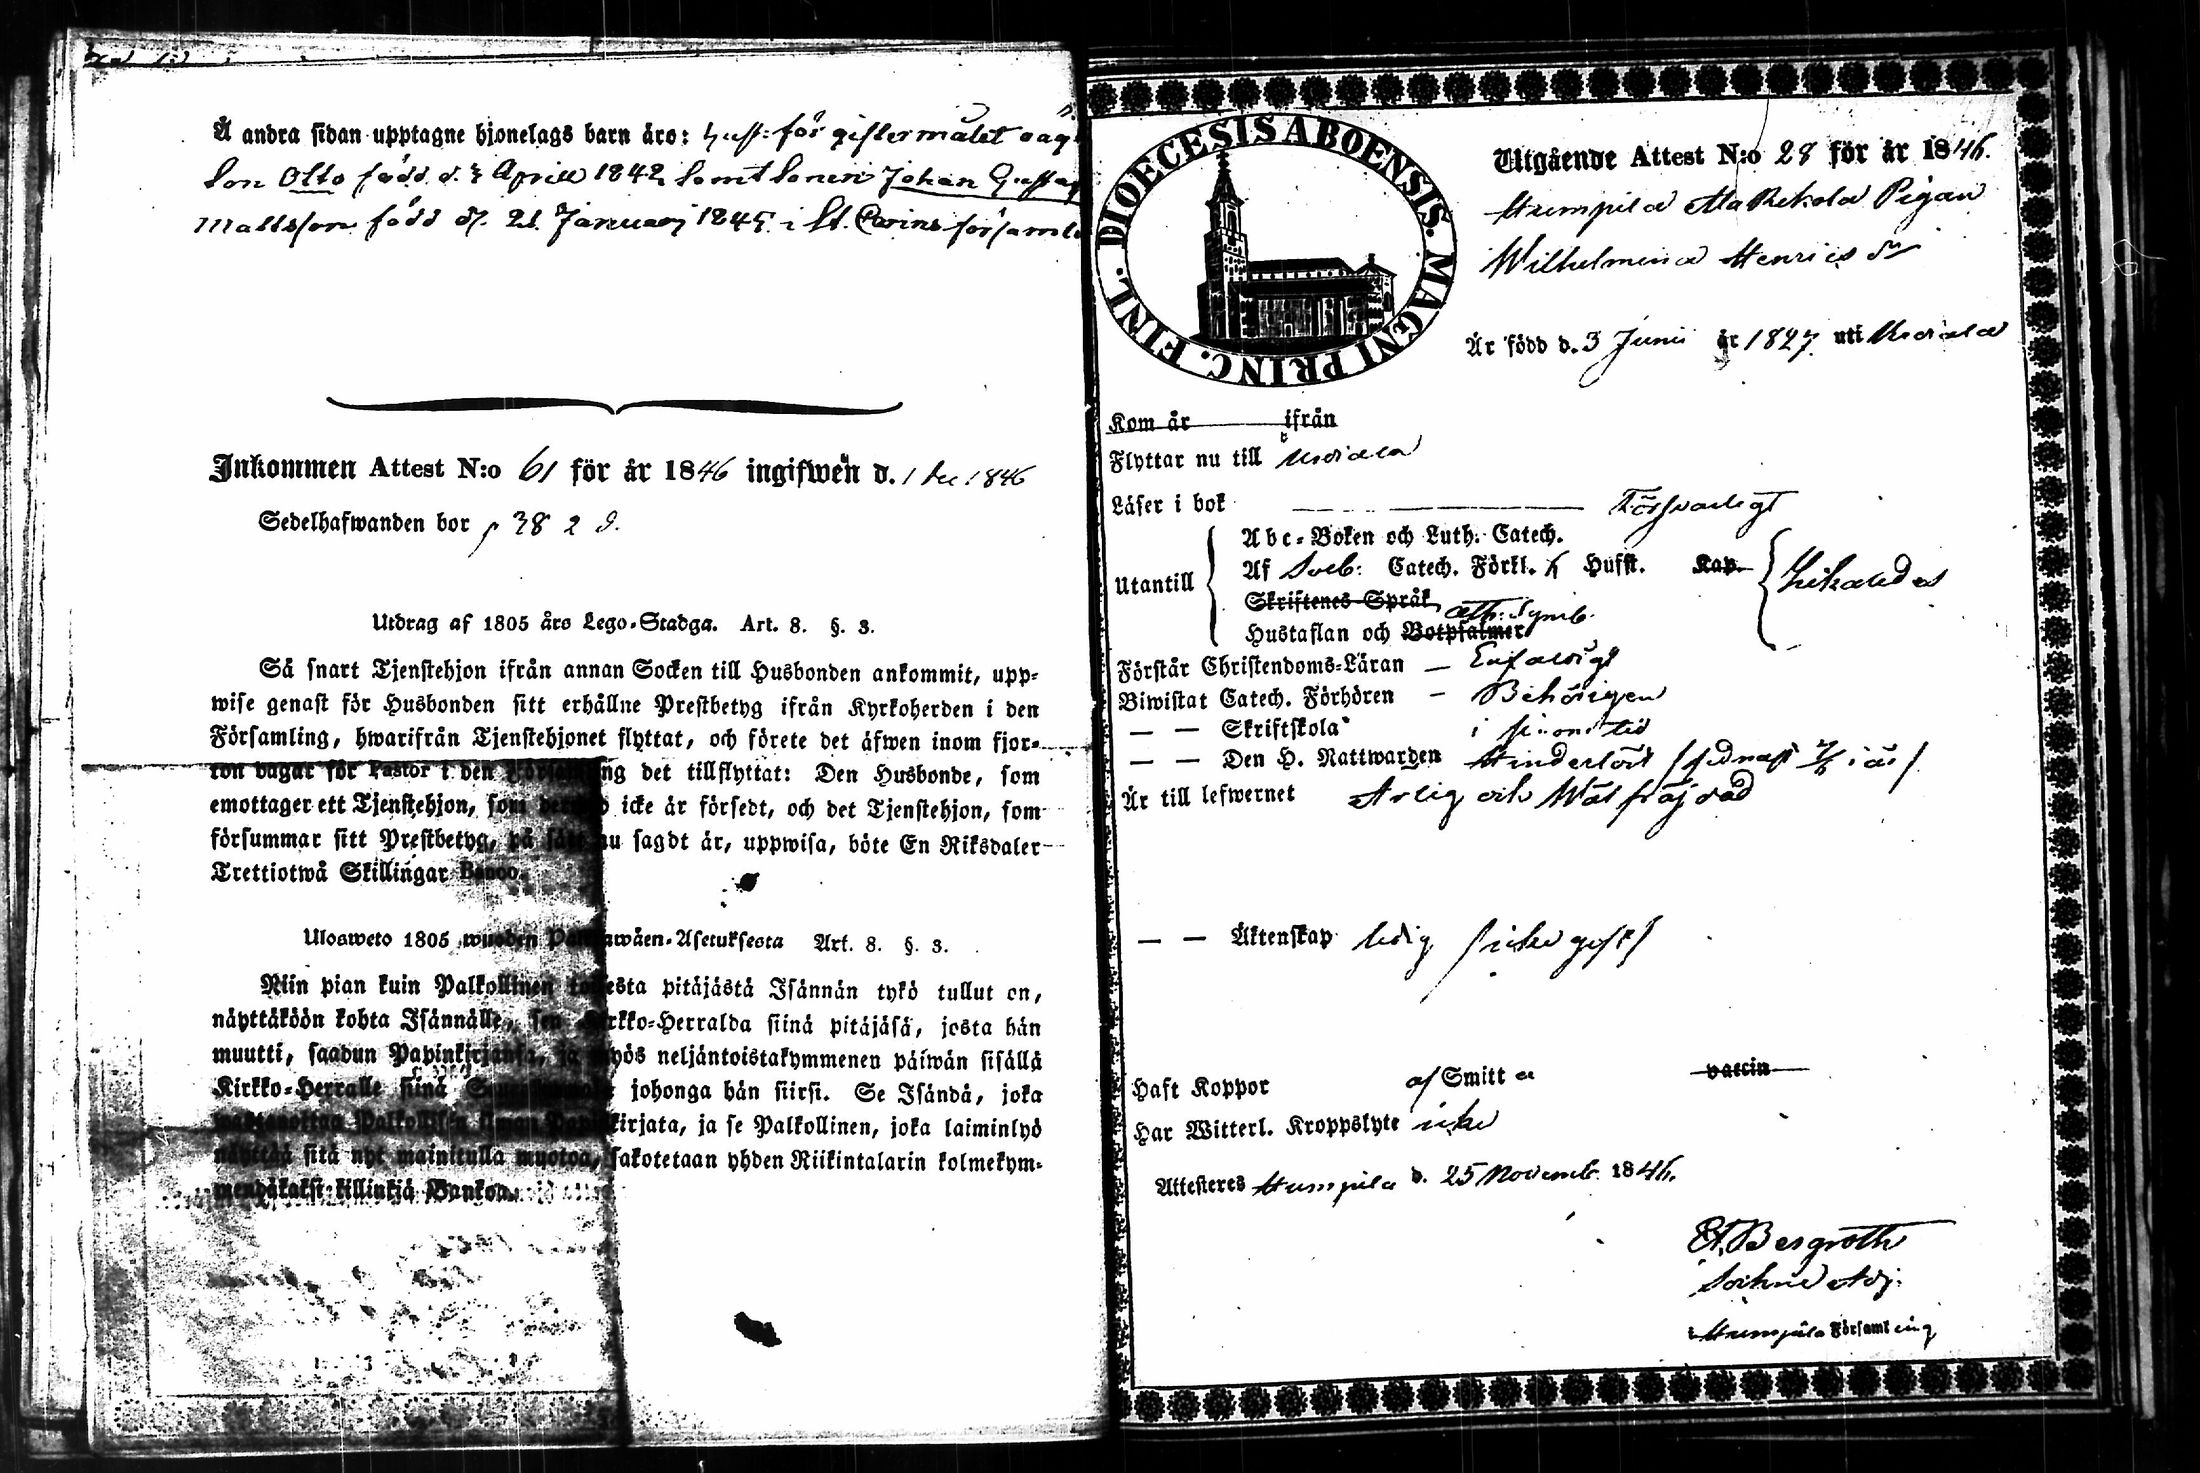 Å andra sidan upptagne hjonelags barn äro: hust: för giftermålet oägta
Son Otto född d. Aprill 1842 samt Sonen Johan Gustaf
Mattsson född d. 21 Januarj 1845 i St. Carins församl
Inkommen Attest N:o 61 för år 1846 ingifwen d. 1 Dec 1846
Sedelhafwanden bor p 38 2 d.
Utdrag af 1805 års Lego-Stadga. Art. 8. §. 3.
Så snart Tjenstehjon ifrån annan Socken till Husbonden ankommit, upp-
wise genast för Husbonden sitt erhållne Prestbetyg ifrån Kyrkoherden i den
Församling, hwarifrån Tjenstehjonet flyttat, och förete det äfwen inom fjor-
ton dagar för Pastor i den Församling det tillflyttat: Den Husbonde, som
emottager ett Tjenstehjon, som dermed icke är försedt, och det Tjenstehjon, som
försummar sitt Prestbetyg, på sätt nu sagdt är, uppwisa, böte En Riksdaler
Trettiotwå Skillingar Banco.
Ulosweto 1805 wuoden Palkkawäen-Asetuksesta Art. 8. §. 3.
Niin pian kuin Palkollinen toisesta pitäjästä Isännän tykö tullut on,
näyttäköön kohta Isännälle, sen Kirkko-Herralda siinä pitäjäsä, josta hän
muutti, saadun Papinkirjansa, ja myös neljäntoistakymmenen päiwän sisällä
Kirkko-Herralle siinä Seurakunnasa johonga hän siirsi. Se Isändä, joka
wastaanottaa Palkollisen ilman Papinkirjata, ja se Palkollinen, joka laiminlyö
näyttää sitä nyt mainitulla muotoa, sakotetaan yhden Riikintalarin kolmekym-
mendäkaksi killinkiä Bankoa.
DIOECESIS ABOENSIS. MAGNI PRINC. FINL.
Utgående Attest N:o 28 för år 1846.
Humpila Pigan
Wilhelmina Henrics dr
Är född d. 3 Junii år 1827 uti Urdiala
Kom år ifrån
Flyttar nu till Urdiala
Läser i bok Försvarligt
Utantill
Abc-Boken och Luth. Catech.
Af Sveb: Catech. Förkl. Hufst. Kap.
Likaledes
Skriftenes Språk Ath: Symb.
Hustaflan och Botpsalmer
Förstår Christendoms-Läran Enfaldigt
Biwistat Catech. Förhören Behörigen
— — Skriftskola i sinom tid
— — Den H. Nattwarden Hinderlöst (sednast i år)
Är till lefwernet Ärlig och Wälfräjdad
— — Äktenskap ledig (icke gift)
Haft Koppor af Smitta vaccin
Har Witterl. Kroppslyte icke
Attesteres Humpila d. 25 Novemb. 1846.
Bergroth
Sockne Adj.
i Humpila Församling